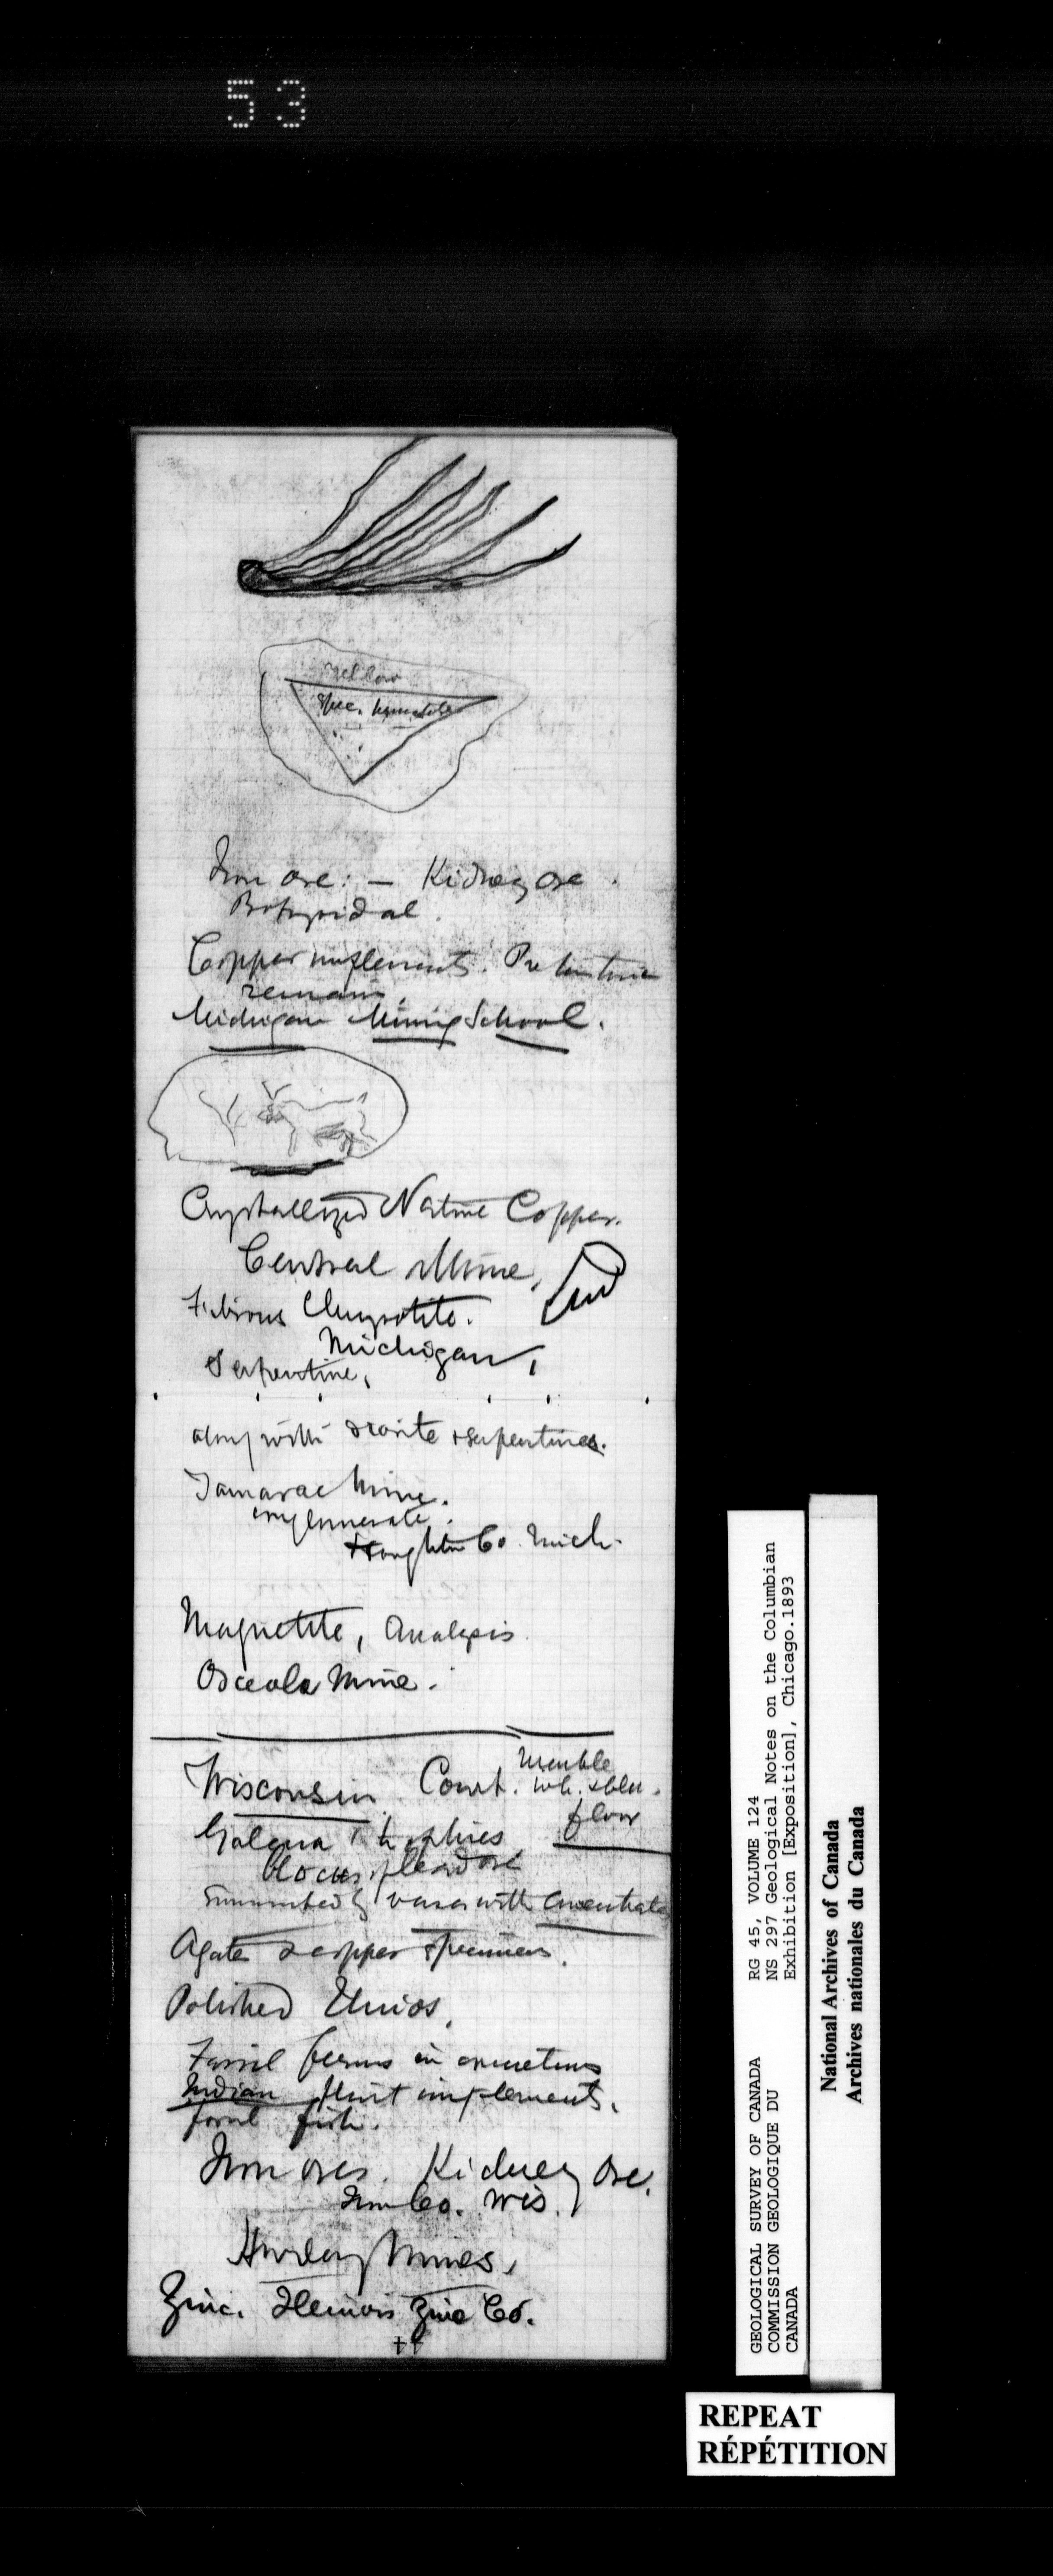 53
yellow
Spec. hematite
Iron ore: — Kidney ore.
Botryoidal.
Copper implements. Prehistoric
remains.
Michigan Mining School.
Crystallized Native Copper.
Central Mine,
Fibrous Chrysotile.
Michigan,
Serpentine,
along with diorite & serpentines.
Tamarac Mine.
conglomerate.
Houghton Co. Mich.
Magnetite, Analysis.
Osceola Mine.
Wisconsin Court. Marble
wh. & blu.
floor
Galena
blocks of lead ore
surmounted by vases with
Agates & copper specimens.
Polished Unios.
Fossil ferns in concretions
Indian flint implements.
fossil fish.
Iron ores. Kidney Ore.
Iron Co. Wis.
Hurley Mines,
Zinc. Illinois Zinc Co.
GEOLOGICAL SURVEY OF CANADA
COMMISSION GEOLOGIQUE DU
CANADA
RG 45, VOLUME 124
NS 297 Geological Notes on the Columbian
Exhibition [Exposition], Chicago.1893
National Archives of Canada
Archives nationales du Canada
REPEAT
RÉPÉTITION